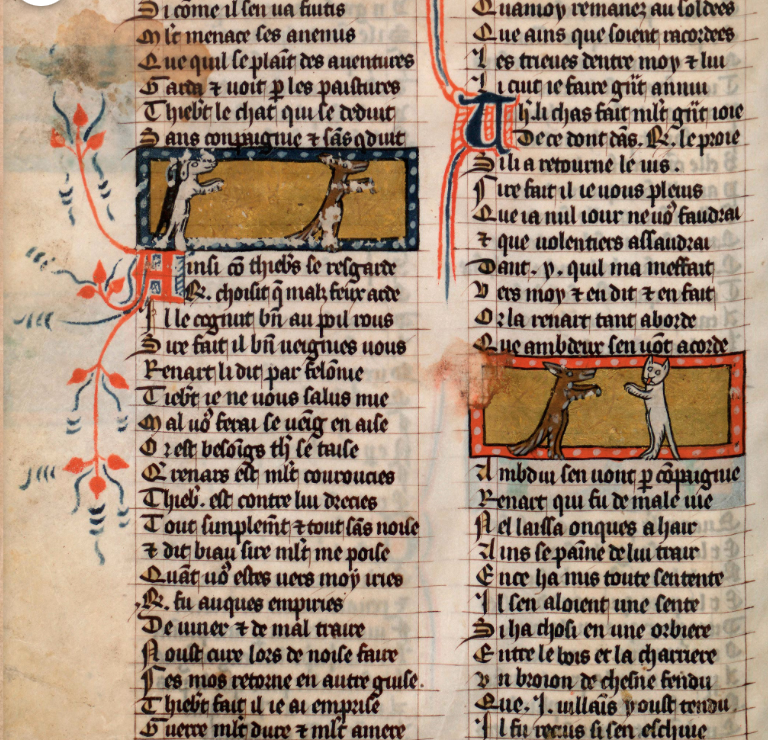 Si come il sen ua fuitis
Mlt menace ses anemis
Que quil se plaint des auentures
Garda ⁊ uoit p les pastures
Thiebt le chat qui se deduit
Sans conpaignie ⁊ sãs 9duit
Ainsi cõ thiebs se resgarde
.R. choisit q̃ malz feux arde
Il le cognut bñ au poil rous
Sire fait il bñ ueignies uous
Renart li dit par felõnie
Tiebt ie ne uous salus mie
Mal uoꝰ ferai se ueig en aise
Or est besoigs th se taise
Q̃ renars est mlt couroucies
Thieb. est contre lui drecies
Tout simplemt̃ ⁊ tout sãs noise
⁊ dit biau sire mlt me poise
Quãt uoꝰ estes uers moy iries
.R. fu auques empiries
De iuner ⁊ de mal traire
Noust cure lors de noise faire
Ses mos retorne en autre guise.
Thiebt fait il ie ai emprise
Guerre mlt dure ⁊ mlt amere
Quamoy remanez au soldees
Que ains que soient racordees
Les trieues dentre moy ⁊ lui
Li cuit ie faire gñt annui
Th. li chas fait mlt gñt ioie
De ce dont dãs. R. le proie
Si li a retourne le uis.
Sire fait il ie uous pleuis
Que ia nul iour ne uoꝰ faudrai
⁊ que uolentiers assaudrai
Dant. y. quil ma meffait
Vers moy ⁊ en dit ⁊ en fait
Or la renart tant aborde
Que ambdeux sen uõt acorde
Ambdui sen uont p cõpaignie
Renart qui fu de male uie
Nel laissa onques a hair
Ains se paine de lui trair
En ce ha mis toute sentente
Il sen aloient une sente
Si ha choisi en une orbiere
Entre le bois et la charriere
Vn broion de chesne fendu
Que .I. uillais y oust tendu
Il fu recus si sen eschiue